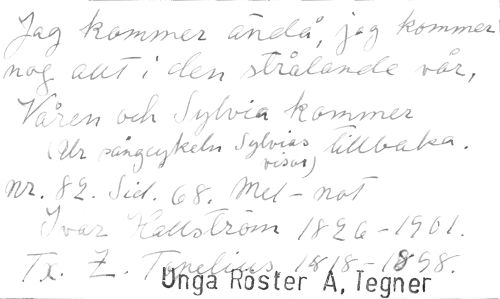 Jag kommer ändå, jag kommer
nog att i den strålande vår,
Våren och Sylvia kommer
(Ur sångcykeln Sylvias tillbaka.
visor)
nr. 82. Sid. 68. Mel-not
Ivar Hallström 1826-1901.
Tx. Z. Topelius, 1818-1898.
Unga Röster A, Tegner